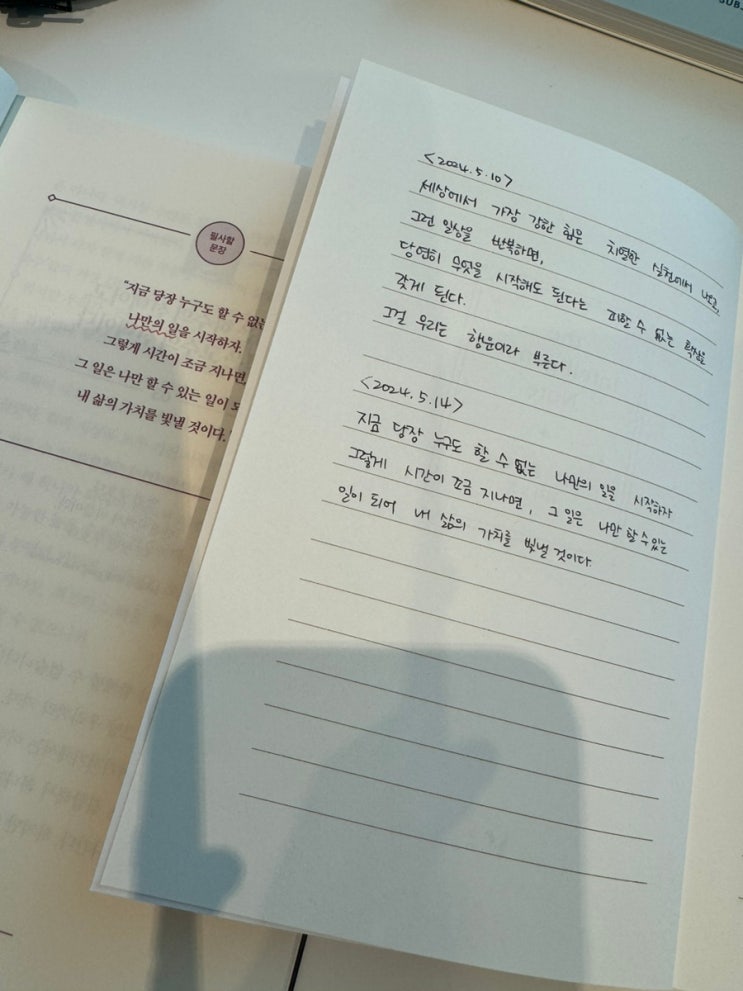 SUB
필사할
문장
"지금 당장 누구도 할 수 없는
나만의 일을 시작하자.
그렇게 시간이 조금 지나면,
그 일은 나만 할 수 있는 일이
내 삶의 가치를 빛낼 것이다.
<2024.5.10>
세상에서 가장 강한 힘은 치열한 실천에서 나오고,
그런 일상을 반복하면,
당연히 무엇을 시작해도 된다는 피할 수 없는 확신을
갖게 된다.
그걸 우리는 행운이라 부른다.
<2024.5.14>
지금 당장 누구도 할 수 없는 나만의 일을 시작하자
그렇게 시간이 조금 지나면, 그 일은 나만 할 수 있는
일이 되어 내 삶의 가치를 빛낼 것이다.